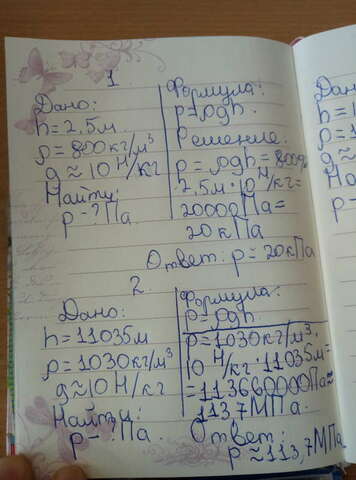 1.
Дано:
h=2,5м
ρ=800кг/м³
g≈10 Н/кг
Найти:
p-? Па
Формула:
p=ρgh.
Решение:
p=ρgh=800
2,5м·10 Н/кг=
20000Па=
20кПа
Ответ: p=20кПа
2.
Дано:
h=11035м
ρ=1030кг/м³
g≈10 Н/кг
Найти:
p-? Па.
Формула:
p=ρgh
p=1030кг/м³·
10 Н/кг·11035м=
=113660000Па≈
113,7МПа.
Ответ:
p≈113,7МПа
Дано
h=1
ρ=
g≈
Най
p-